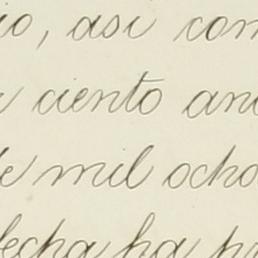 io, asi com
ciento and
de mil ocho
fecha ha p